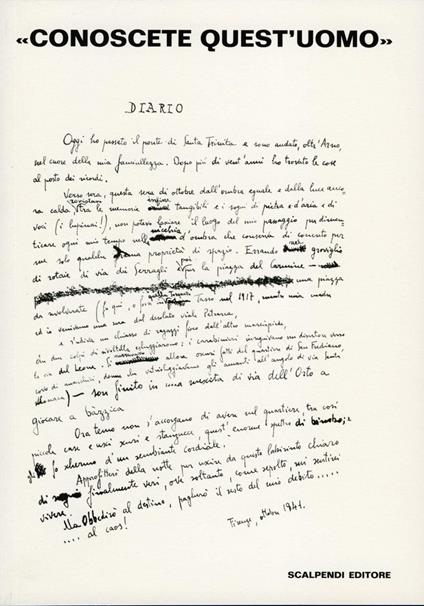 «CONOSCETE QUEST'UOMO»
DIARIO
Oggi ho passato il ponte di Santa Trinita e sono andato, oltr'Arno,
nel cuore della mia fanciullezza. Dopo più di vent'anni ho trovato le cose
al posto dei ricordi.
Verso sera, questa sera di ottobre dall'ombra eguale e dalla luce anco-
ra calda, tra le memorie tangibili e i sogni di pietra e d'aria e di
voci (i lupinai!), non potevo lasciare il luogo del mio passaggio per dimen-
ticare ogni mio tempo nella nicchia d'ombra che conserva di concreto per
me solo qualche proprietà di spazio. Errando nel groviglio
di rotaie di via dei Serragli e poi la piazza del Carmine —
una piazza
da involversi (fo qui, e Tasso nel 1917, mia madre
ed io venivamo una sera dal desolato viale Petrarca,
e s'udiva un chiasso di ragazzi fare dall'altro marciapiede,
due colpi di rivoltella echeggiarono: i carabinieri inseguivano un disertore verso
la via del Leone. allora oscuri fatti del quartiere di San Frediano,
covo di donne che gli amanti all'angolo di via Santa
) — son finito in una mescita di via dell'Orto a
giocare a bàzzica
Ora temo non s'accorgano di avere nel quartiere, tra così
piccole case e usci scuri e stanzucce, quest'enorme spettro di bimbo;
gli fo schermo d'un sembiante cordiale.
Approfitterò della notte per uscire da questo labirinto chiaro
di finalmente veri, ove soltanto, come sepolto, mi sentirei
vivere.
Ma obbedirò al destino, pagherò il resto del mio debito.....
.... al caos!
Firenze, ottobre 1941.
SCALPENDI EDITORE